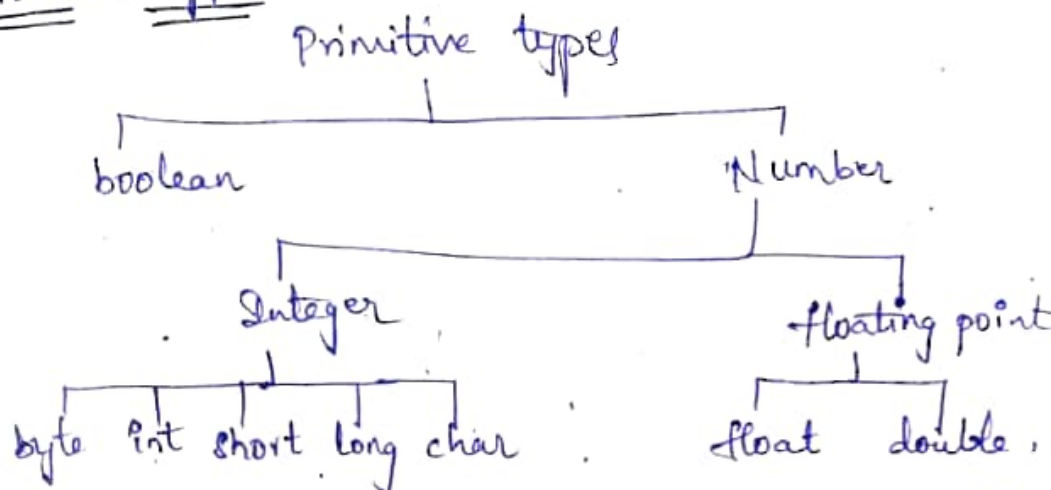 Primitive types
boolean Number
Integer floating point
byte int short long char float double.